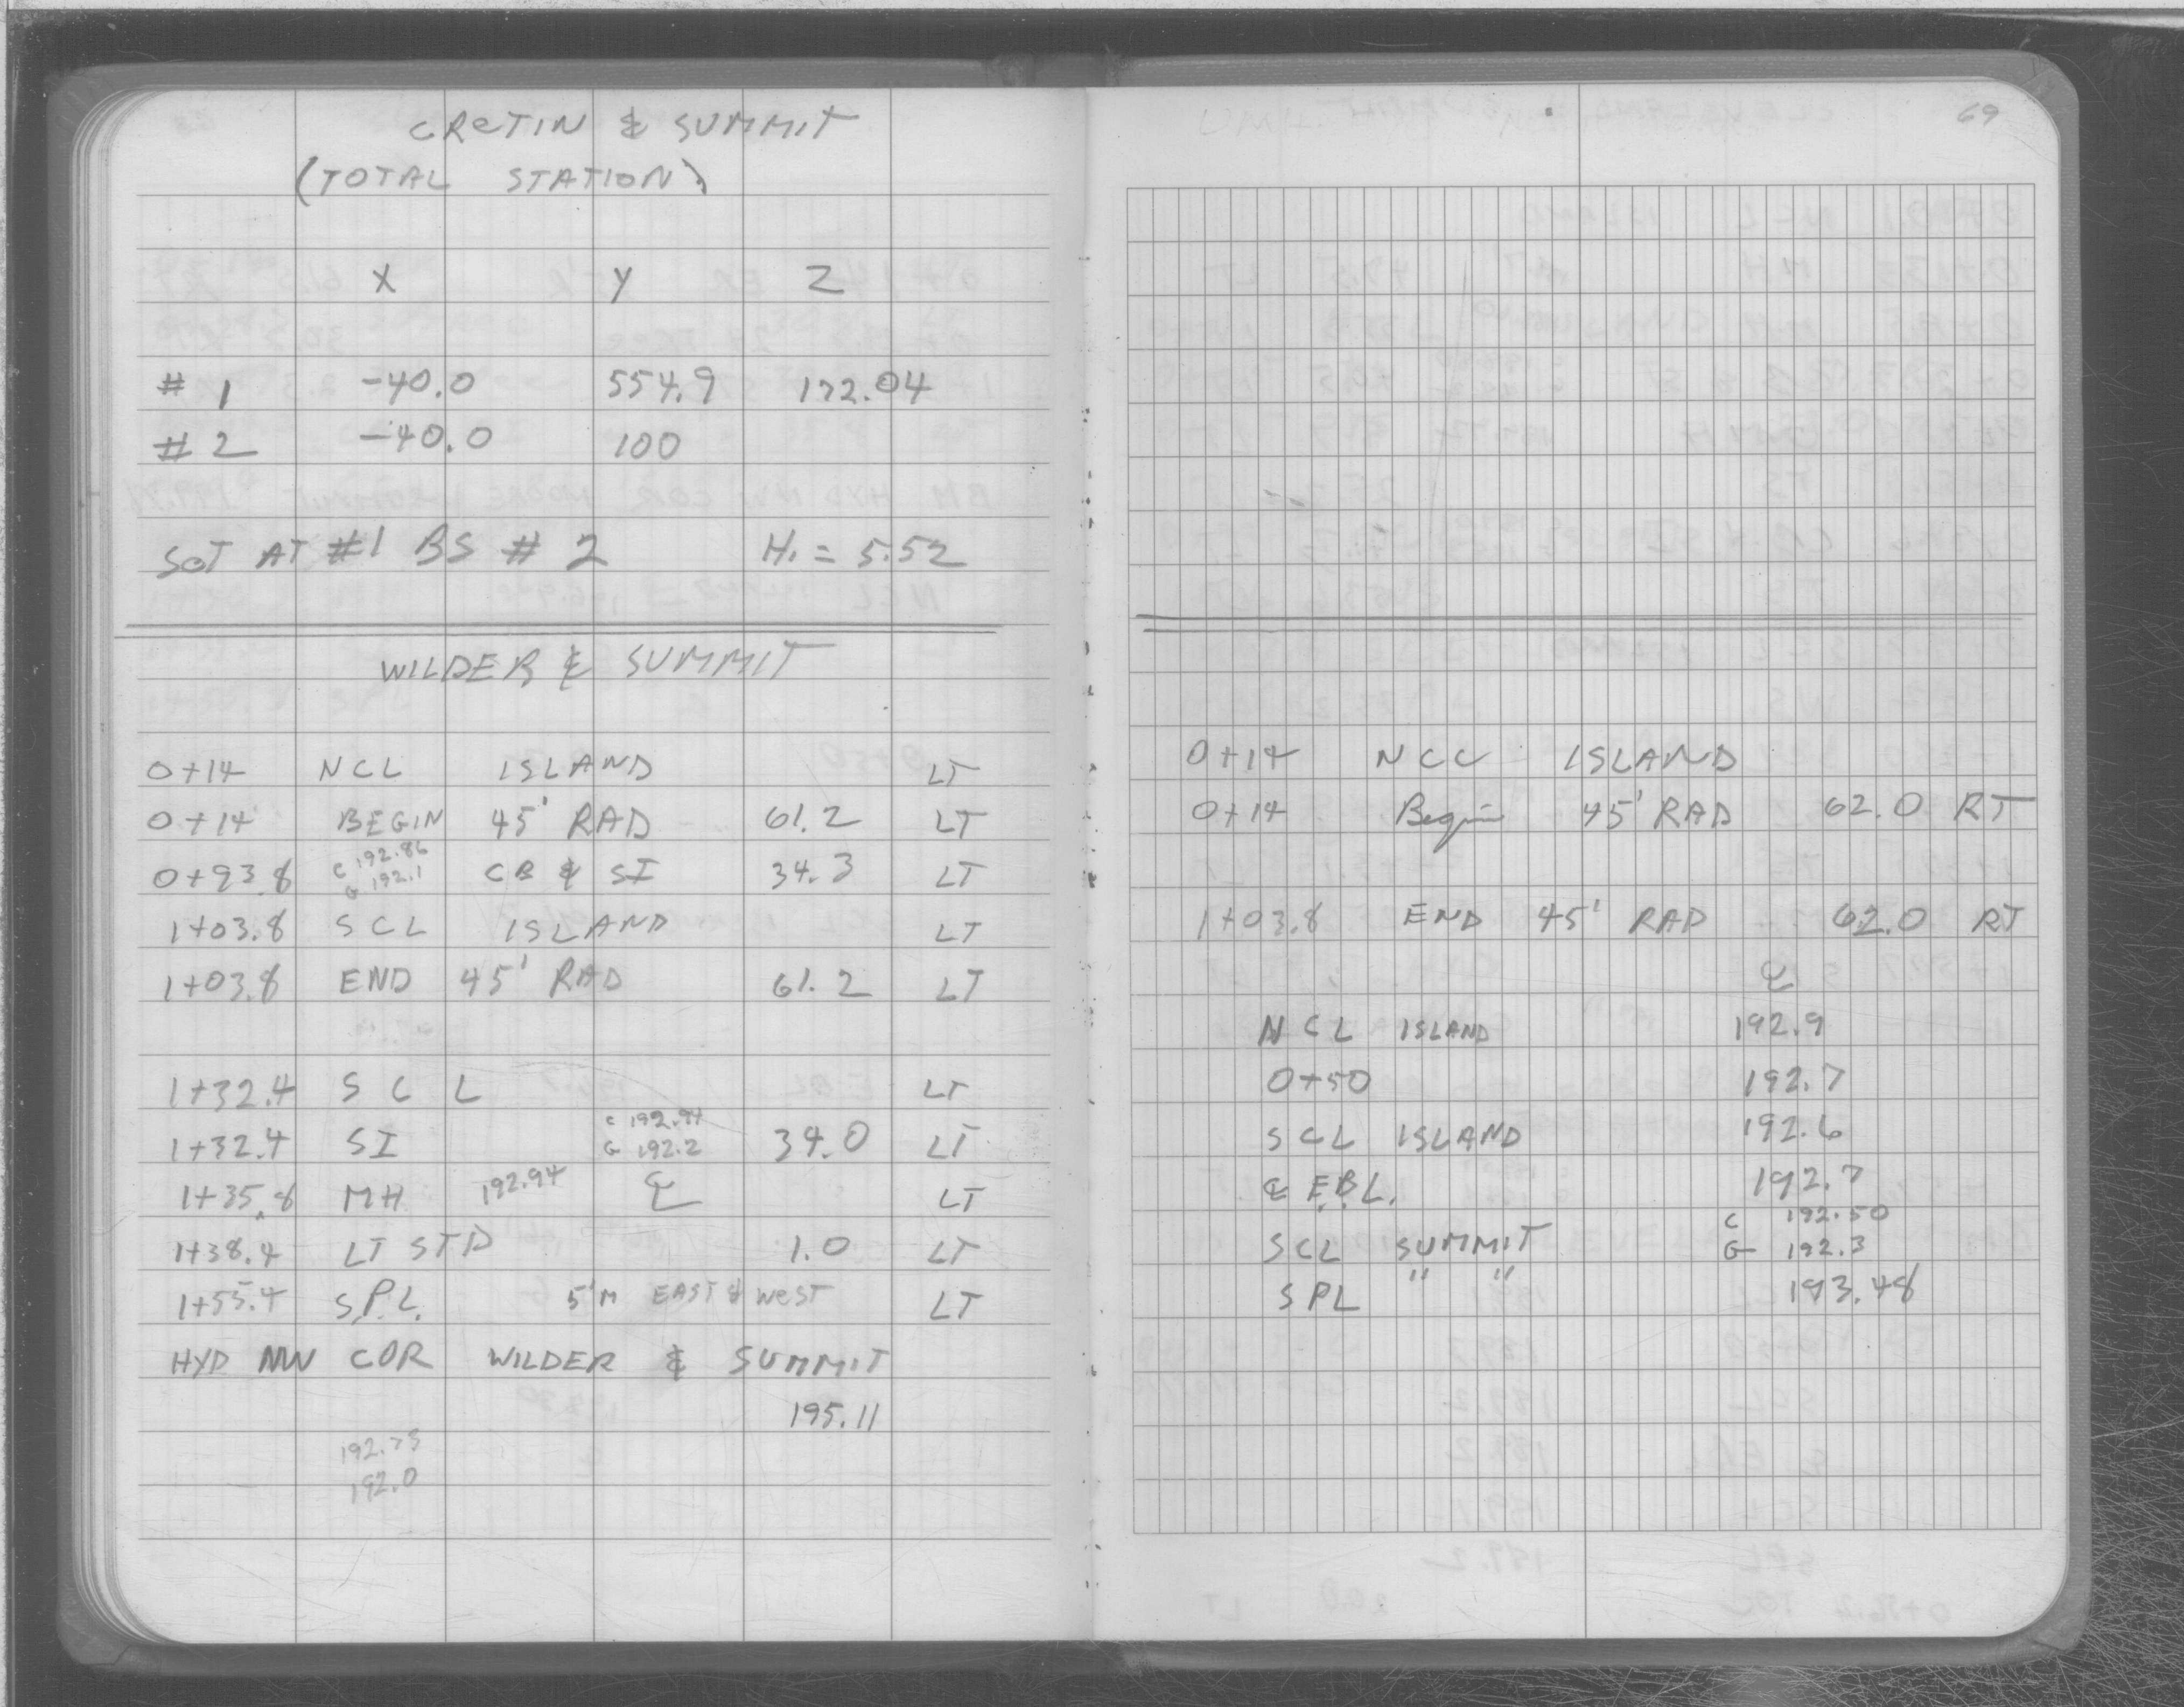 CRETIN & SUMMIT
(TOTAL STATION)
X Y Z
# 1 -40.0 554.9 172.04
# 2 -40.0 100
SET AT #1 BS # 2 H. = 5.52
WILDER & SUMMIT
0+14 NCL ISLAND LT
0+14 BEGIN 45' RAD 61.2 LT
0+93.8 C 192.86 G 192.1 CB & SI 34.3 LT
1+03.8 SCL ISLAND LT
1+03.8 END 45' RAD 61.2 LT
1+32.4 SCL LT
1+32.4 SI C 192.94 G 192.2 34.0 LT
1+35.8 MH 192.94 ℄ LT
1+38.4 LT STD 1.0 LT
1+55.4 S.P.L. 5'M EAST & WEST LT
HYD NW COR WILDER & SUMMIT
195.11
192.73
192.0
69
0+14 NCL ISLAND
0+14 Begin 45' RAD 62.0 RT
1+03.8 END 45' RAD 62.0 RT
℄
NCL ISLAND 192.9
0+50 192.7
SCL ISLAND 192.6
℄ E.B.L. 192.7
SCL SUMMIT C 192.50 G 192.3
SPL " " 193.48